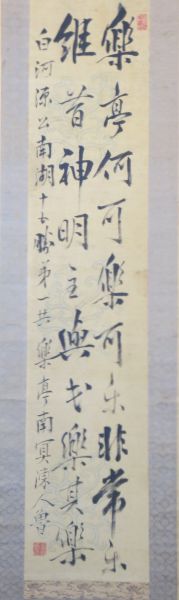 樂亭何可樂可樂非常樂
維昔神明主與民樂其樂
白河源公南湖十六勝第一共樂亭南冥陳人曹